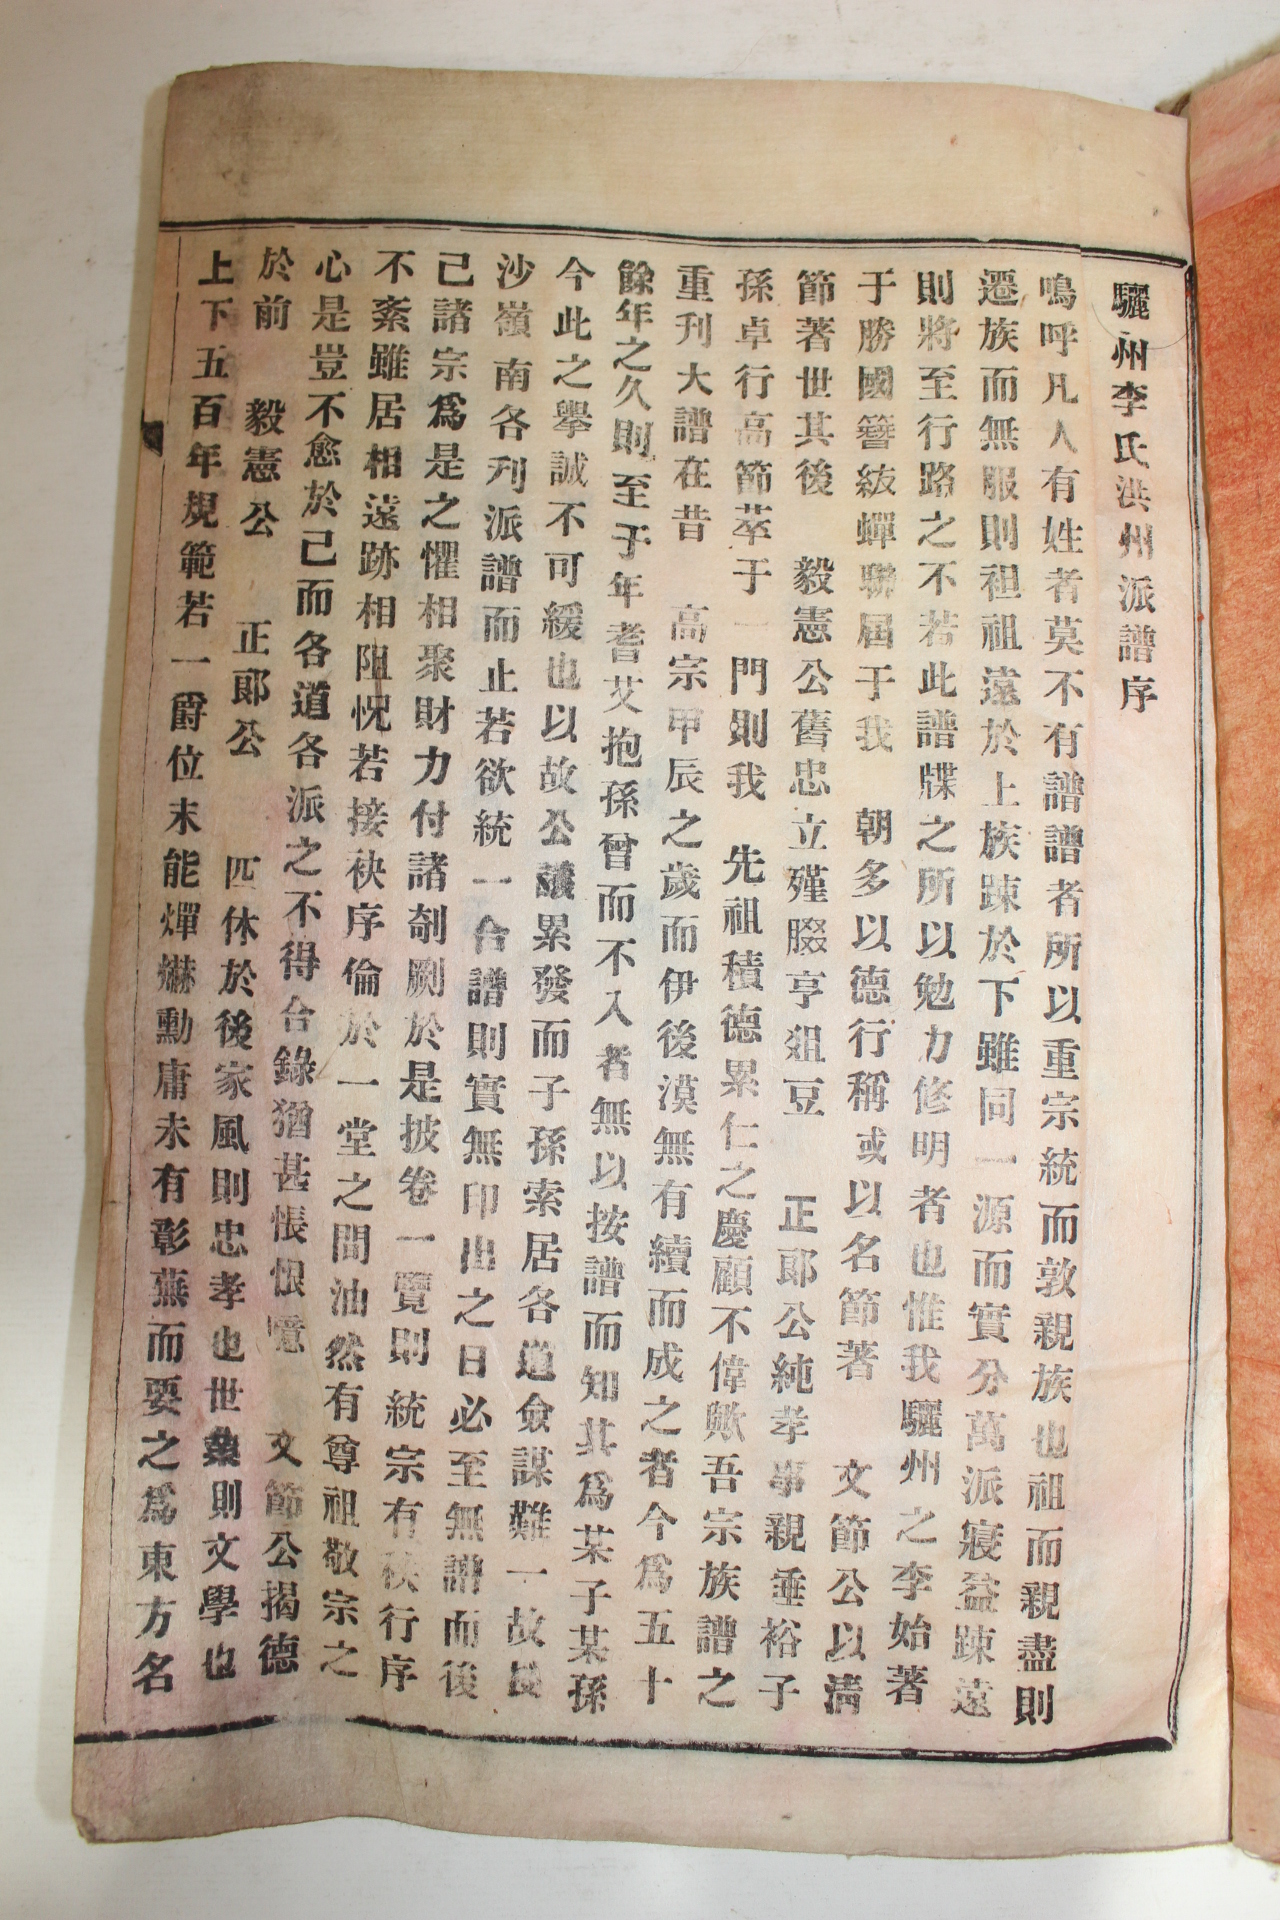 驪州李氏洪州派譜序
嗚呼凡人有姓者莫不有譜譜者所以重宗統而敦親族也祖而親盡則
遷族而無服則祖祖遠於上族踈於下雖同一源而實分萬派寢益踈遠
則將至行路之不若此譜牒之所以勉力修明者也惟我驪州之李始著
于勝國簪紱蟬聯屆于我 朝多以德行稱或以名節著 文節公以淸
節著世其後 毅憲公舊忠立殣腏亨俎豆 正郞公純孝事親垂裕子
孫卓行高節萃于一門則我 先祖積德累仁之慶顧不偉歟吾宗族譜之
重刊大譜在昔 高宗甲辰之歲而伊後漠無有續而成之者今爲五十
餘年之久則至于年耆艾抱孫曾而不入者無以按譜而知其爲某子某孫
今此之擧誠不可緩也以故公議累發而子孫索居各道僉謀難一故長
沙嶺南各刋派譜而止若欲統一合譜則實無印出之日必至無譜而後
已諸宗爲是之懼相聚財力付諸剞劂於是披卷一覽則統宗有秩行序
不紊雖居相遠跡相阻怳若接袂序倫於一堂之間油然有尊祖敬宗之
心是豈不愈於已而各道各派之不得合錄猶甚悵恨噫 文節公揭德
於前 毅憲公 正郞公 匹休於後家風則忠孝也世業則文學也
上下五百年規範若一爵位末能燀爀勳庸未有彰蕪而要之爲東方名